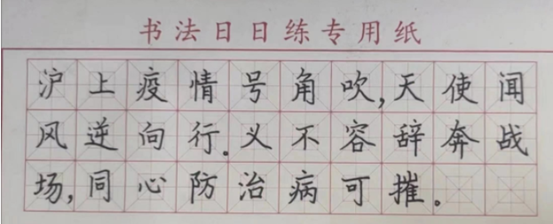 书法日日练专用纸
沪上疫情号角吹,天使闻
风逆向行.义不容辞奔战
场,同心防治病可摧。